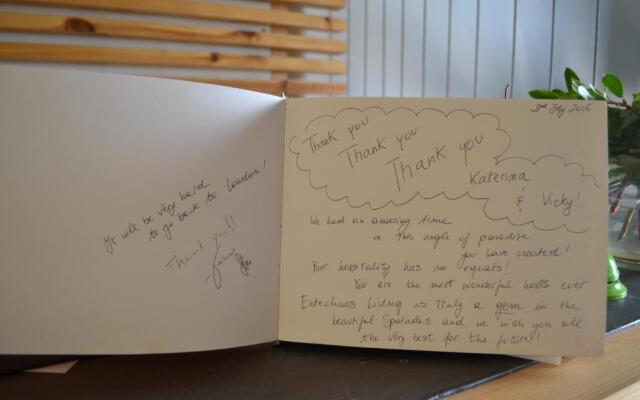 It will be very hard
to go back to London!
Thank you!!
2nd July 2016
Thank you
Thank you
Thank you
Katerina
& Vicky!
We had an amazing time
in this angle of paradise
you have created!
Your hospitality has no equals!
You are the most wonderful hosts ever
Entechnes Living is Truly a gem in the
beautiful Sporades and we wish you all
the very best for the future!!